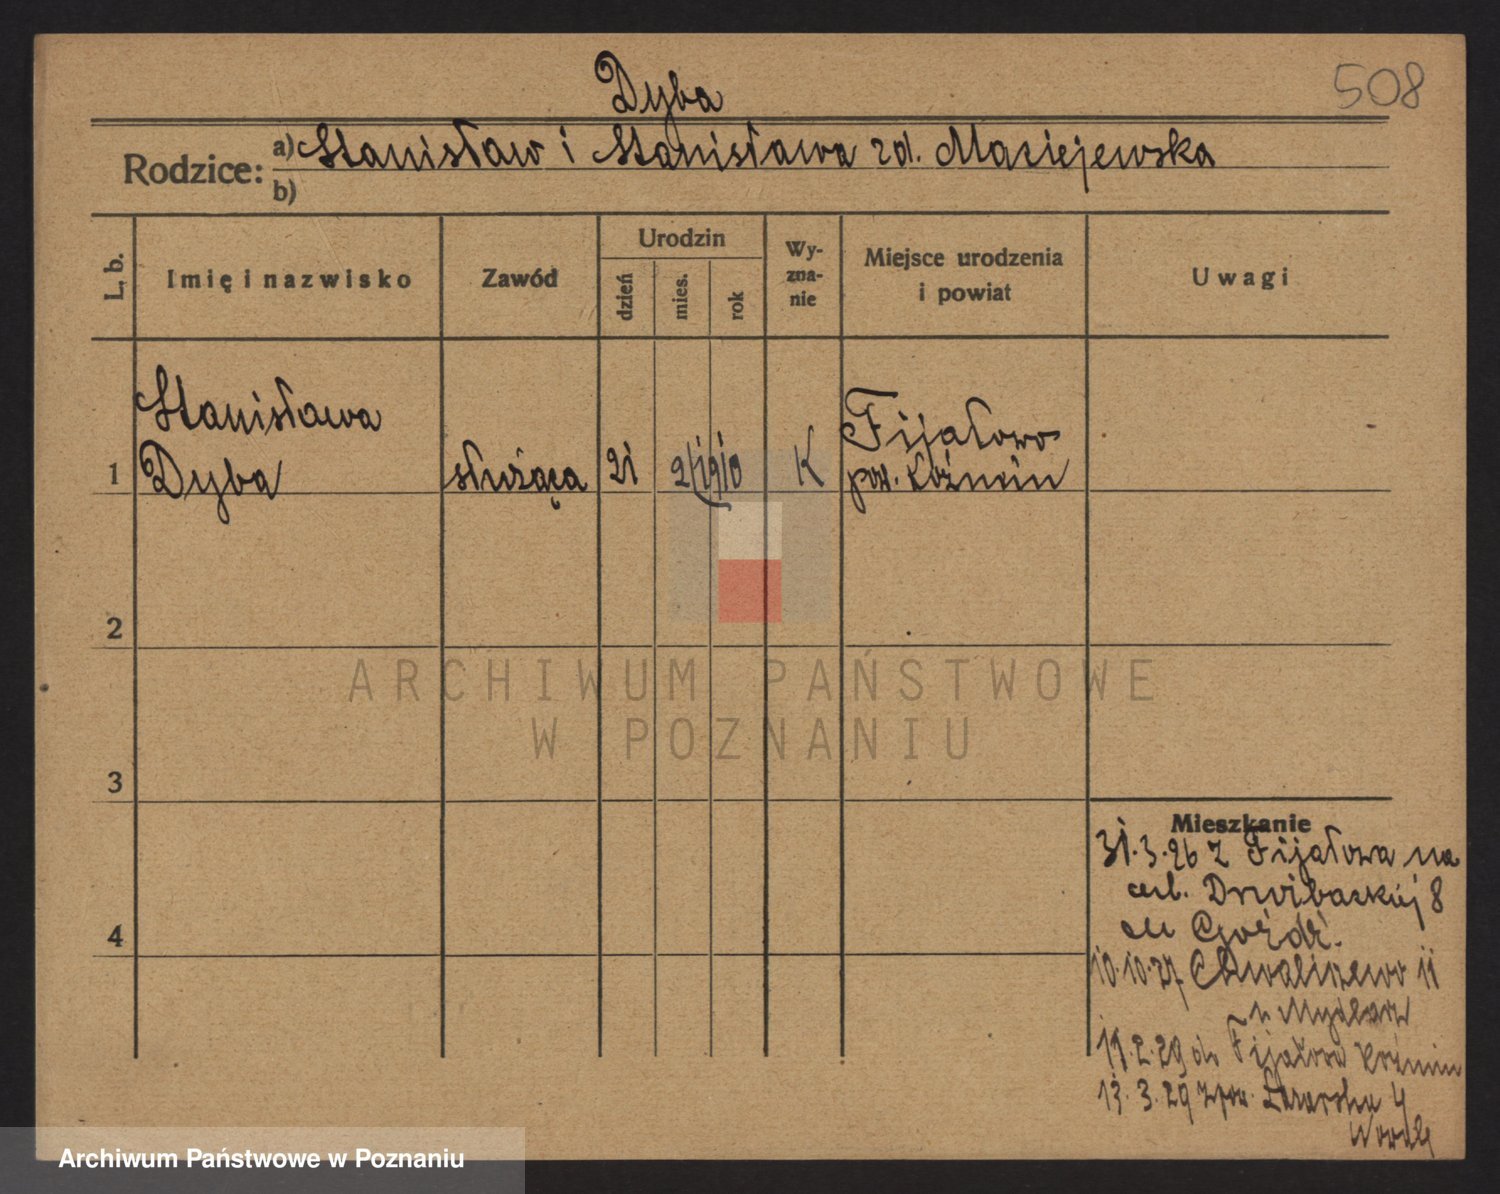 508
Dyba
Rodzice:
a) Stanisław i Stanisława zd. Maciejewska
b)
L. b.
Imię i nazwisko
Zawód
Urodzin
dzień
mies.
rok
Wy-
zna-
nie
Miejsce urodzenia
i powiat
Uwagi
Stanisława
1 Dyba
służąca
21
2/1910
K
Fijałowo
pow. Koźmin
2
3
4
Mieszkanie
31.3.26 z Fijałowa na
8
10.10.27 Chwaliszewo 11
11.2.29 do Fijałowa Koźmin
13.3.29 z pow. 4
ARCHIWUM PAŃSTWOWE
W POZNANIU
Archiwum Państwowe w Poznaniu